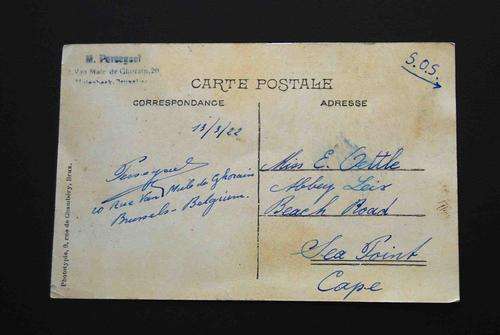 M. Persequel
Van Male de Ghorain, 20
CARTE POSTALE
S.O.S.
CORRESPONDANCE
ADRESSE
13/3/22
20 Rue Van Male de Ghorain
Brussels - Belgium.
Miss E. Oettle
Abbey Leix
Beach Road
Sea Point
Cape
Phototypie, 9, rue de Chambéry, Brux.